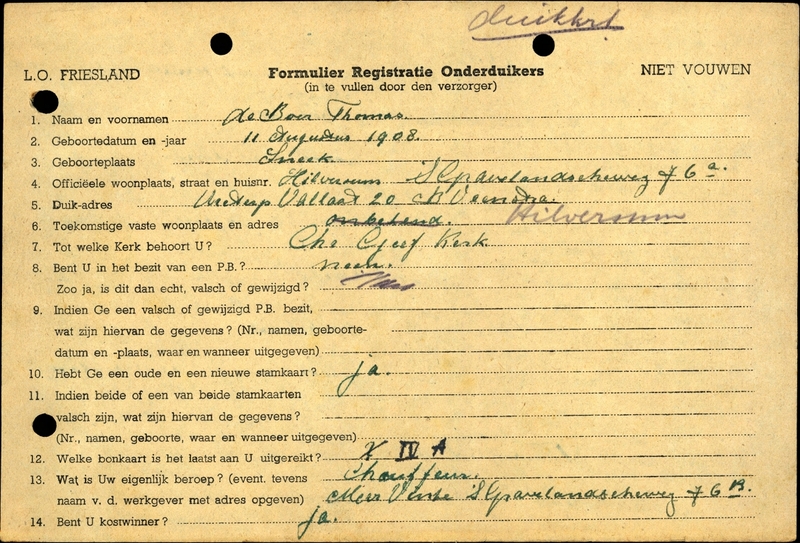 L.O. FRIESLAND
Formulier Registratie Onderduikers
(in te vullen door den verzorger)
NIET VOUWEN
1. Naam en voornamen de Boer Thomas.
2. Geboortedatum en -jaar 11 Augustus 1908.
3. Geboorteplaats Sneek
4. Officiëele woonplaats, straat en huisnr. Hilversum 'S Gravelandscheweg 76 a.
5. Duik-adres Vallaat 20
6. Toekomstige vaste woonplaats en adres onbekend. Hilversum
7. Tot welke Kerk behoort U? Chr Geref Kerk
8. Bent U in het bezit van een P.B.? neen.
Zoo ja, is dit dan echt, valsch of gewijzigd?
9. Indien Ge een valsch of gewijzigd P.B. bezit,
wat zijn hiervan de gegevens? (Nr., namen, geboorte-
datum en -plaats, waar en wanneer uitgegeven)
10. Hebt Ge een oude en een nieuwe stamkaart? ja.
11. Indien beide of een van beide stamkaarten
valsch zijn, wat zijn hiervan de gegevens?
(Nr., namen, geboorte, waar en wanneer uitgegeven)
12. Welke bonkaart is het laatst aan U uitgereikt? IV A
13. Wat is Uw eigenlijk beroep? (event. tevens Chauffeur.
naam v. d. werkgever met adres opgeven) 'S Gravelandscheweg 76 B.
14. Bent U kostwinner? ja.